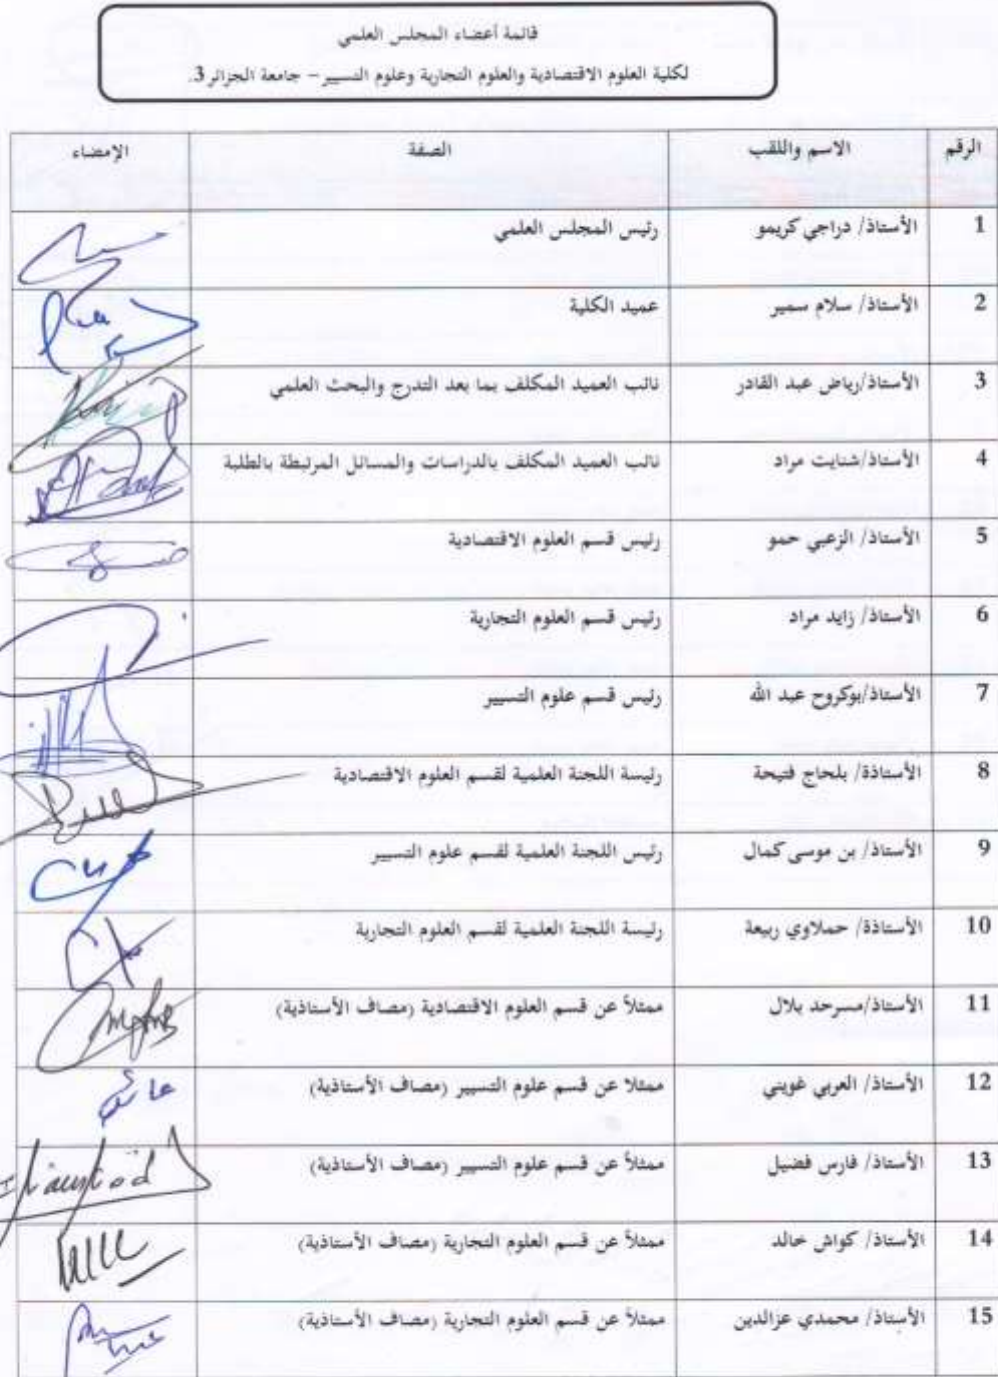 قائمة أعضاء المجلس العلمي
لكلية العلوم الاقتصادية والعلوم التجارية وعلوم التسيير – جامعة الجزائر 3.
الرقم الاسم واللقب الصفة الإمضاء
1 الأستاذ/ دراجي كريمو رئيس المجلس العلمي
2 الأستاذ/ سلام سمير عميد الكلية
3 الأستاذ/رياض عبد القادر نائب العميد المكلف بما بعد التدرج والبحث العلمي
4 الأستاذ/شنايت مراد نائب العميد المكلف بالدراسات والمسائل المرتبطة بالطلبة
5 الأستاذ/ الزعبي حمو رئيس قسم العلوم الاقتصادية
6 الأستاذ/ زايد مراد رئيس قسم العلوم التجارية
7 الأستاذ/بوكروح عبد الله رئيس قسم علوم التسيير
8 الأستاذة/ بلحاج فتيحة رئيسة اللجنة العلمية لقسم العلوم الاقتصادية
9 الأستاذ/ بن موسى كمال رئيس اللجنة العلمية لقسم علوم التسيير
10 الأستاذة/ حملاوي ربيعة رئيسة اللجنة العلمية لقسم العلوم التجارية
11 الأستاذ/مسرحد بلال ممثلاً عن قسم العلوم الاقتصادية (مصاف الأستاذية)
12 الأستاذ/ العربي غويني ممثلا عن قسم علوم التسيير (مصاف الأستاذية)
13 الأستاذ/ فارس فضيل ممثلاً عن قسم علوم التسيير (مصاف الأستاذية)
14 الأستاذ/ كواش خالد ممثلاً عن قسم العلوم التجارية (مصاف الأستاذية)
15 الأستاذ/ محمدي عزالدين ممثلاً عن قسم العلوم التجارية (مصاف الأستاذية)